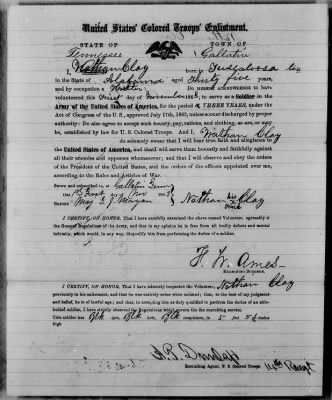 United States' Colored Troops' Enlistment.
STATE OF TOWN OF
Tennessee Gallatin
I, Nathan Clay born in Tuscaloosa
in the State of Alabama aged Thirty five years,
and by occupation a DO HEREBY ACKNOWLEDGE to have
volunteered this First day of November 1863, to serve as a Soldier in the
Army of the United States of America, for the period of THREE YEARS, under the
Act of Congress of the U.S., approved July 17th, 1862, unless sooner discharged by proper
authority: Do also agree to accept such bounty, pay, rations, and clothing, as are, or may
be, established by law for U. S. Colored Troops. And I, Nathan Clay
do solemnly swear that I will bear true faith and allegiance to
the United States of America, and that I will serve them honestly and faithfully against
all their enemies and opposers whomsoever; and that I will observe and obey the orders
of the President of the United States, and the orders of the officers appointed over me,
according to the Rules and Articles of War.
Sworn and subscribed to, at Gallatin Tenn
this First day of Nov 1863
BEFORE Nathan his X mark Clay
I CERTIFY, ON HONOR, That I have carefully examined the above named Volunteer, agreeably to
the General Regulations of the Army, and that in my opinion he is free from all bodily defects and mental
infirmity, which would, in any way, disqualify him from performing the duties of a soldier.
H. W. Ames
EXAMINING SURGEON.
I CERTIFY, ON HONOR, That I have minutely inspected the Volunteer, Nathan Clay
previously to his enlistment, and that he was entirely sober when enlisted; that, to the best of my judgment
and belief, he is of lawful age; and that, in accepting him as duly qualified to perform the duties of an able-
bodied soldier, I have strictly observed the Regulations which govern the recruiting service.
This soldier has Blk eyes, Blk hair, Blk complexion, is 5 feet inches
high.
Recruiting Agent, U. S. Colored Troops.
14th Regt